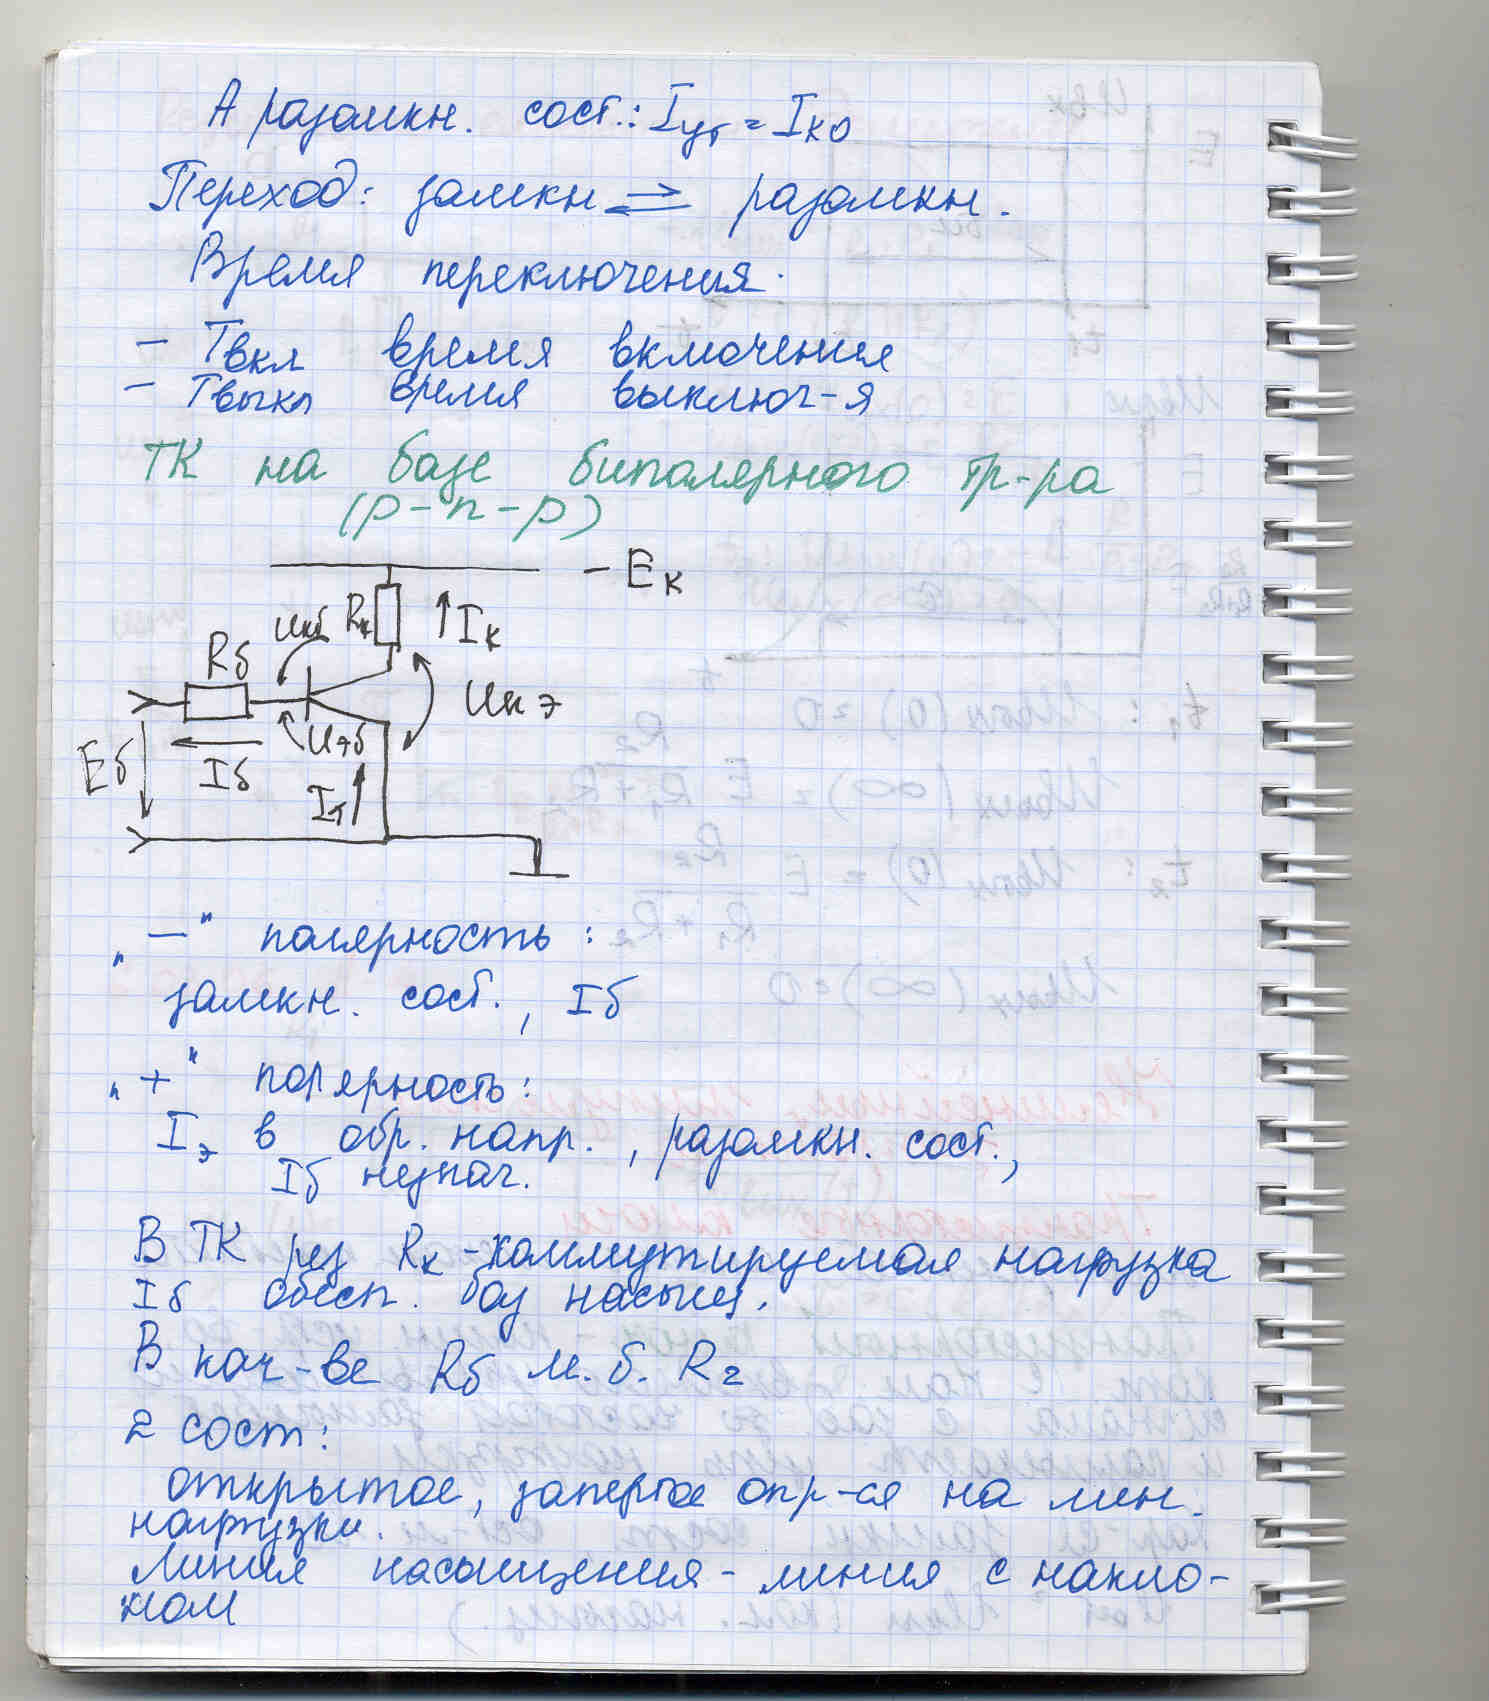 А разомкн. сост.: Iут = Iк0
Переход: замкн ⇄ разомкн.
Время переключения.
- Твкл время включения
- Твыкл время выключ-я
ТК на базе биполярного тр-ра
(p-n-p)
- Eк
Uкб Rк Iк
Rб
Uкэ
Eб Iб Uэб
Iэ
„—" полярность:
замкн. сост., Iб
„+" полярность:
Iэ в обр. напр., разомкн. сост.,
Iб незнач.
В ТК рез Rк - коммутируемая нагрузка
Iб обесп. баз насыщ.
В кач-ве Rб м.б. Rг
2 сост:
открытое, запертое опр-ся на лин.
нагрузки.
Линия насыщения - линия с накло-
ном